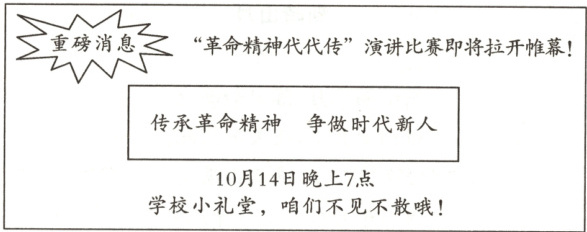 重磅消息
“革命精神代代传”演讲比赛即将拉开帷幕！
传承革命精神　争做时代新人
10月14日晚上7点
学校小礼堂，咱们不见不散哦！